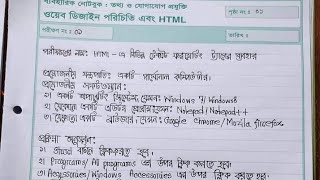 ব্যবহারিক নোটবুক : তথ্য ও যোগাযোগ প্রযুক্তি
ওয়েব ডিজাইন পরিচিতি এবং HTML
পৃষ্ঠা নং : ০১
পরীক্ষণের নাম: HTML-এ বিভিন্ন ট্যাগের ব্যবহার
প্রয়োজনীয় যন্ত্রপাতি: একটি পার্সোনাল কম্পিউটার।
১। একটি অপারেটিং সিস্টেম যেমন: Windows 7/Windows8
২। যেকোনো একটি যেমন: Notepad/Notepad++
৩। যেকোনো একটি ব্রাউজার যেমন: Google Chrome/Mozila firefox
১। Start বাটনে ক্লিক করতে হবে।
২। Programs/All programs এর উপর ক্লিক করতে হবে।
৩। Accessories/Windows Accessories এর উপর ক্লিক করতে হবে।